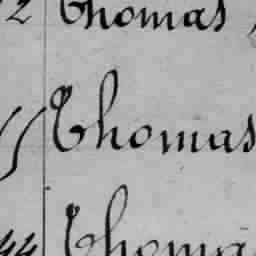 2 Thomas
Thomas
44 Thoma